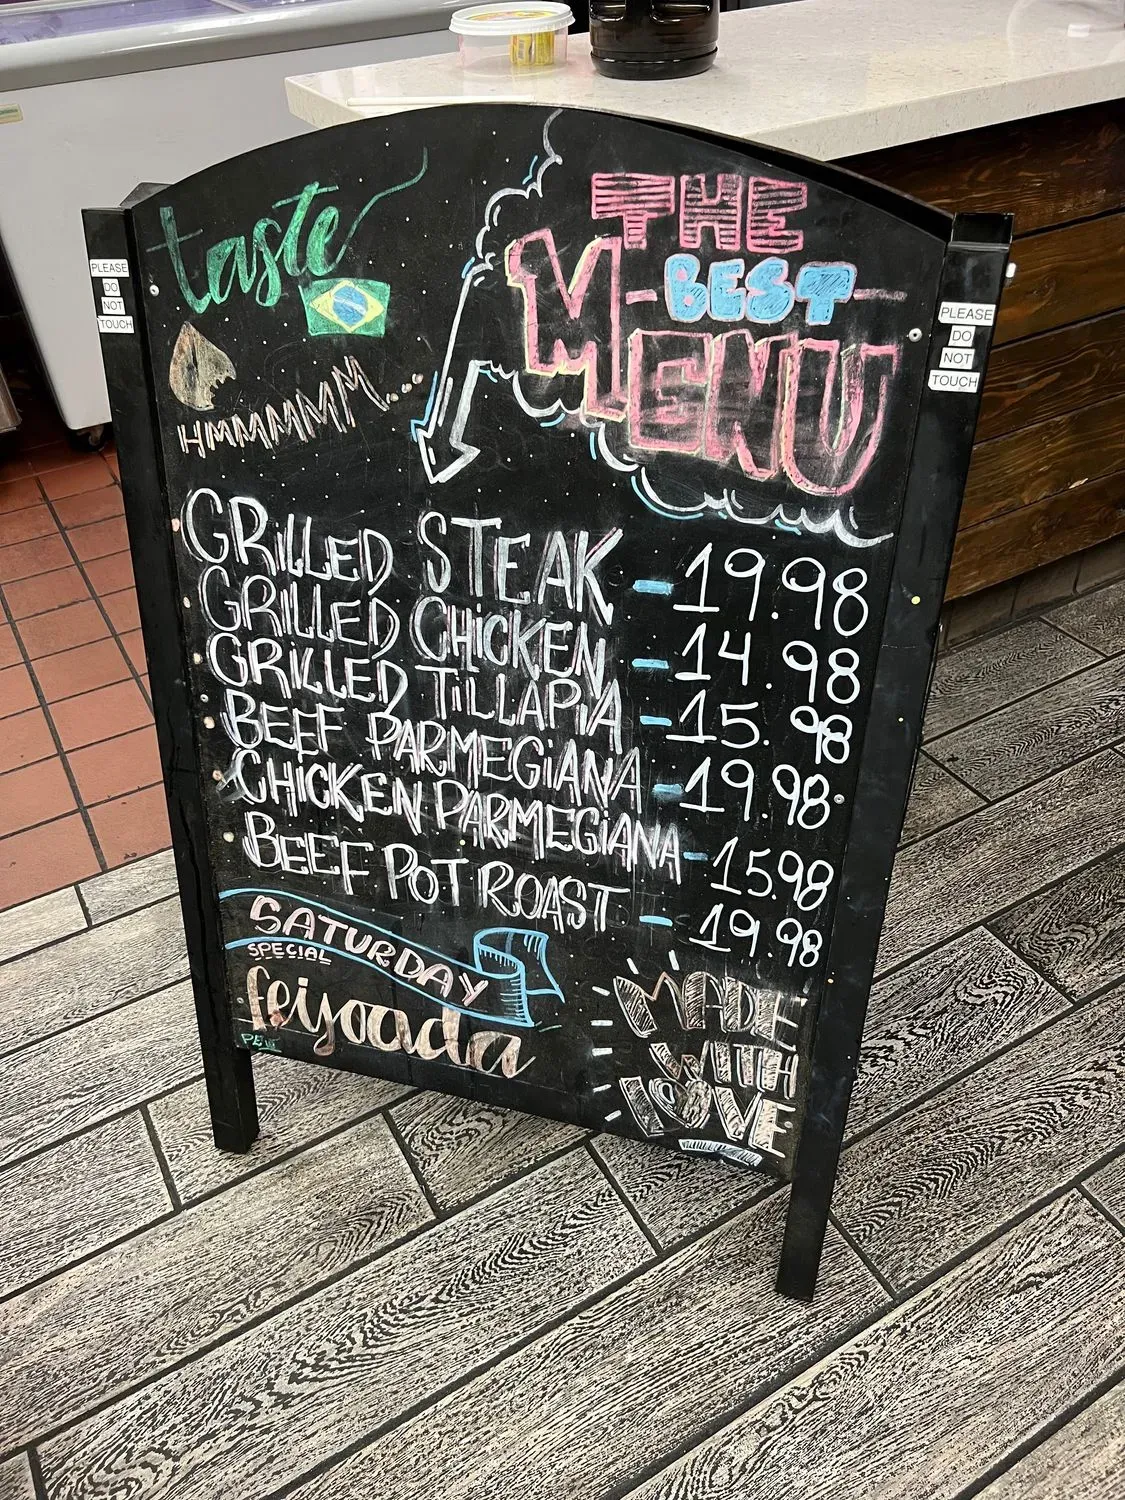 taste
HMMMMMM...
THE
BEST
MENU
PLEASE
DO
NOT
TOUCH
PLEASE
DO
NOT
TOUCH
GRILLED STEAK - 19.98
GRILLED CHICKEN - 14.98
GRILLED TILLAPIA - 15.98
BEEF PARMEGIANA - 19.98
CHICKEN PARMEGIANA - 15.98
BEEF POT ROAST - 19.98
SATURDAY
SPECIAL
feijoada
MADE
WITH
LOVE